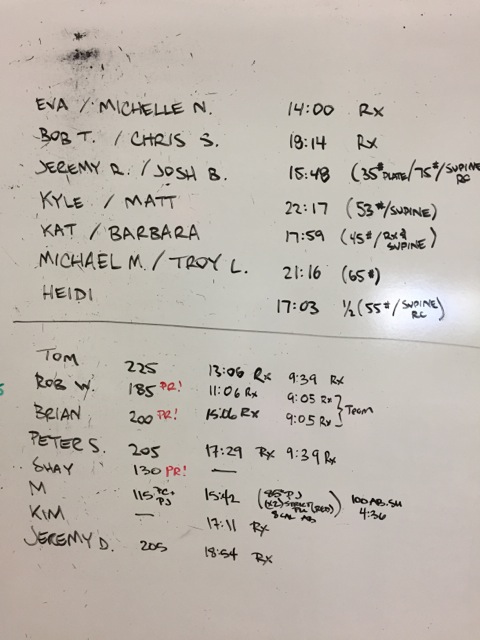 EVA / MICHELLE N. 14:00 Rx
BOB T. / CHRIS S. 19:14 Rx
JEREMY R. / JOSH B. 15:48 (35# PLATE/75#/SUPINE RC
KYLE / MATT 22:17 (53#/SUPINE)
KAT / BARBARA 17:59 (45#/RX & SUPINE)
MICHAEL M. / TROY L. 21:16 (65#)
HEIDI 17:03 1/2 (55#/SUPINE RC)
TOM 225 13:06 Rx 9:39 Rx
ROB W. 185 PR! 11:06 Rx 9:05 Rx } TEAM
BRIAN 200 PR! 15:06 Rx 9:05 Rx
PETER S. 205 17:29 Rx 9:39 Rx
SHAY 130 PR! —
M 115 PC+ PJ 15:42 (85# PJ (x2) STRICT PU (RED) 8 CAL AB) 100 AB. SU 4:36
KIM — 17:11 Rx
JEREMY D. 205 18:54 Rx